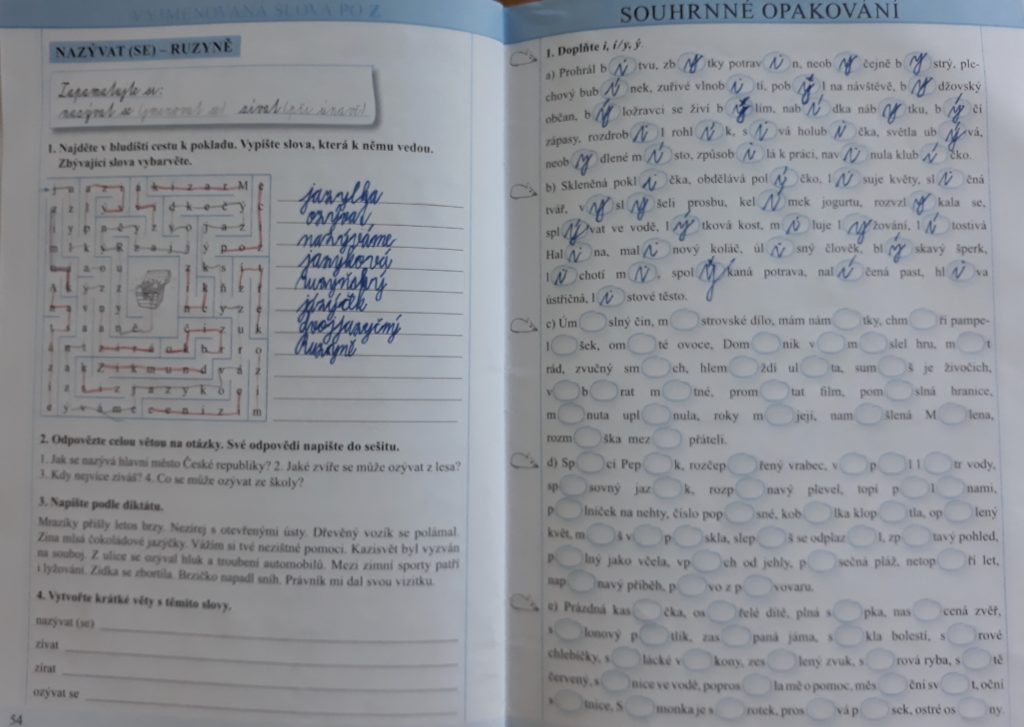 VYJMENOVANÁ SLOVA PO Z
NAZÝVAT (SE) – RUZYNĚ
Zapamatujte si:
nazývat se (jmenovat se) zívat
1. Najděte v bludišti cestu k pokladu. Vypište slova, která k němu vedou.
Zbývající slova vybarvěte.
jazylka
ozývat
nazýváme
jazyková
Ruzyňský
jazýček
dvojjazyčný
Ruzyně
2. Odpovězte celou větou na otázky. Své odpovědi napište do sešitu.
1. Jak se nazývá hlavní město České republiky? 2. Jaké zvíře se může ozývat z lesa?
3. Kdy nejvíce zíváš? 4. Co se může ozývat ze školy?
3. Napište podle diktátu.
Mrazíky přišly letos brzy. Nezírej s otevřenými ústy. Dřevěný vozík se polámal.
Zina mlsá čokoládové jazýčky. Vážím si tvé nezištné pomoci. Kazisvět byl vyzván
na souboj. Z ulice se ozýval hluk a troubení automobilů. Mezi zimní sporty patří
i lyžování. Zídka se zbortila. Brzičko napadl sníh. Právník mi dal svou vizitku.
4. Vytvořte krátké věty s těmito slovy.
nazývat (se)
zívat
zírat
ozývat se
54
SOUHRNNÉ OPAKOVÁNÍ
1. Doplňte i, í/y, ý.
a) Prohrál b i tvu, zb y tky potrav i n, neob y čejně b y strý, ple-
chový bub í nek, zuřivé vlnob i tí, pob ý l na návštěvě, b y džovský
občan, b ý ložravci se živí b ý lím, nab í dka náb y tku, b ý čí
zápasy, rozdrob i l rohl í k, s i vá holub i čka, světla ub ý vá,
neob y dlené m í sto, způsob i lá k práci, nav i nula klub í čko.
b) Skleněná pokl i čka, obdělává pol í čko, l i suje květy, sl i čná
tvář, v y sl y šeli prosbu, kel í mek jogurtu, rozvzl y kala se,
spl ý vat ve vodě, l ý tková kost, m i luje l y žování, l í tostivá
Hal i na, mal i nový koláč, úl i sný člověk, bl ý skavý šperk,
l i chotí m i, spol ý kaná potrava, nal í čená past, hl í va
ústřičná, l i stové těsto.
c) Úm slný čin, m strovské dílo, mám nám tky, chm ří pampe-
l šek, om té ovoce, Dom ník v m slel hru, m t
rád, zvučný sm ch, hlem ždí ul ta, sum š je živočich,
v b rat m tné, prom tat film, pom slná hranice,
m nuta upl nula, roky m její, nam šlená M lena,
rozm ška mez přáteli.
d) Sp cí Pep k, rozčep řený vrabec, v p l l tr vody,
sp sovný jaz k, rozp navý plevel, topí p l nami,
p lníček na nehty, číslo pop sné, kob lka klop tla, op lený
květ, m š v p skla, slep š se odplaz l, zp tavý pohled,
p lný jako včela, vp ch od jehly, p sečná pláž, netop ří let,
nap navý příběh, p vo z p vovaru.
e) Prázdná kas čka, os řelé dítě, plná s pka, nas cená zvěř,
s lonový p tlík, zas paná jáma, s kla bolestí, s rové
chlebíčky, s lácké v kony, zes lený zvuk, s rová ryba, s tě
červený, s nice ve vodě, popros la mě o pomoc, měs ční sv t, oční
s lnice, S monka je s rotek, pros vá p sek, ostré os ny.